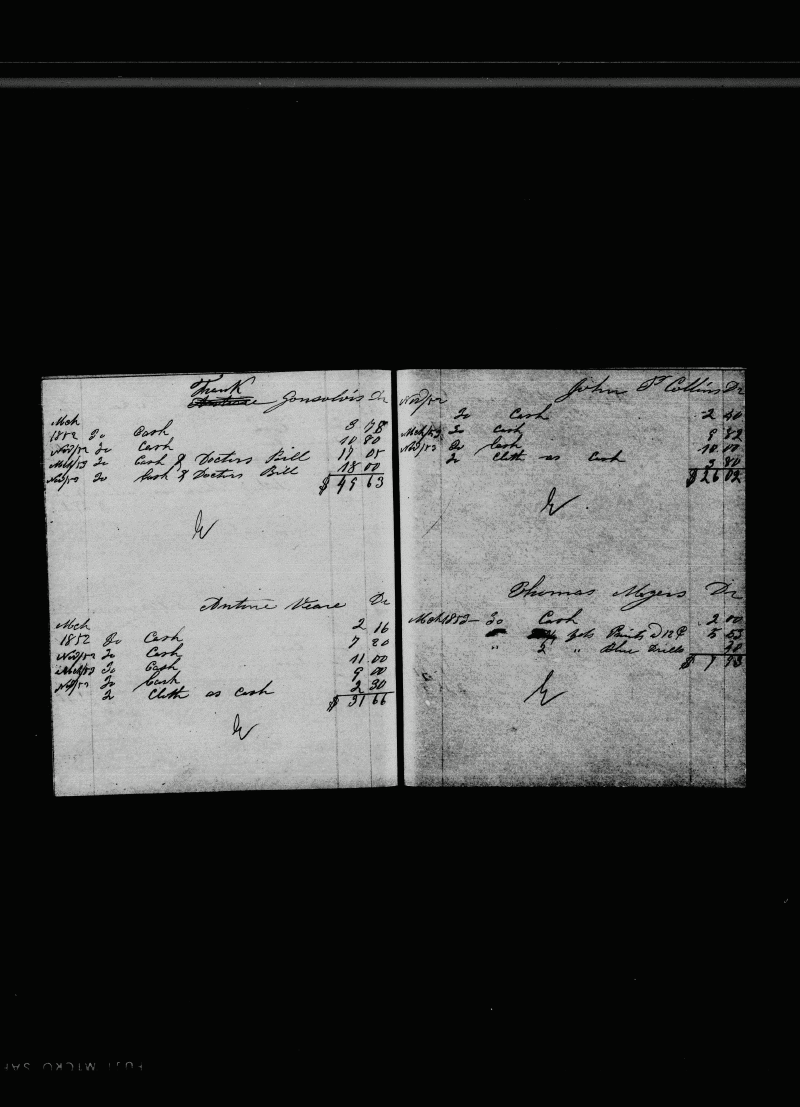 Frank
Antone Gonsolvis Dr
Mch
1852 To Cash 3 78
Nov/52 To Cash 10 80
Mch/53 To Cash & Doctors Bill 17 05
Nov/53 To Cash & Doctors Bill 18 00
$ 49 63
Antone Veare Dr
Mch 2 16
1852 To Cash 7 20
Nov/52 To Cash 11 00
Mch/53 To Cash 9 00
Nov/53 To Cash 2 30
To Cloth as Cash
$ 31 66
John T Collins Dr
Nov/52
To Cash 2 40
Mch/53 To Cash 9 82
Nov/53 To Cash 10 00
To Cloth as Cash 3 80
$ 26 02
Thomas Meyers Dr
Mch 1853 - To Cash 2 00
yds Prints 12 5 53
" 2 " Blue Drills
$ 7 93